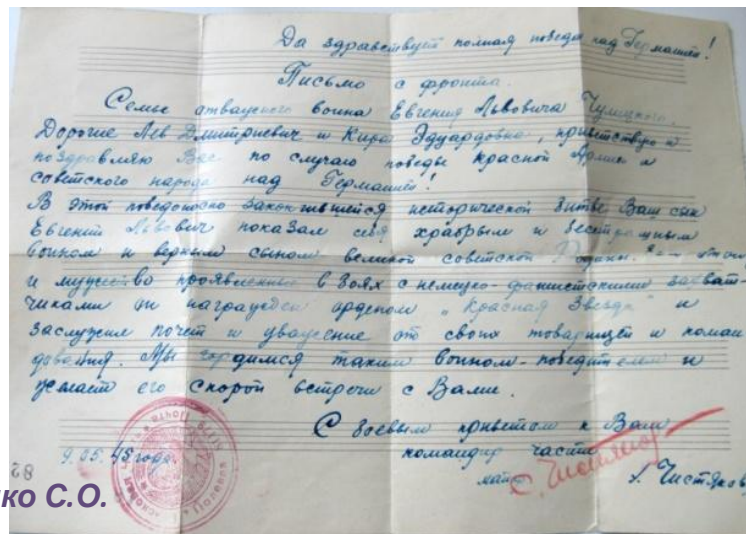 Да здравствует полная победа над Германией!
Письмо с фронта.
Семье отважного воина Евгения Львовича
Дорогие Лев Дмитриевич и Кира Эдуардовна, приветствую и
поздравляю Вас по случаю победы Красной Армии и
советского народа над Германией!
В этой победоносно закончившейся исторической битве Ваш сын
Евгений Львович показал себя храбрым и бесстрашным
воином и верным сыном великой советской Родины. За
и мужество проявленные в боях с немецко-фашистскими захват-
чиками он награжден орденом „Красная Звезда" и
заслужил почет и уважение от своих товарищей и коман
дования. Мы гордимся таким воином-победителем и
желаем его скорой встречи с Вами.
С боевым приветом к Вам
9.05.45 года. командир части
А. Чистяков
82
ко С.О.